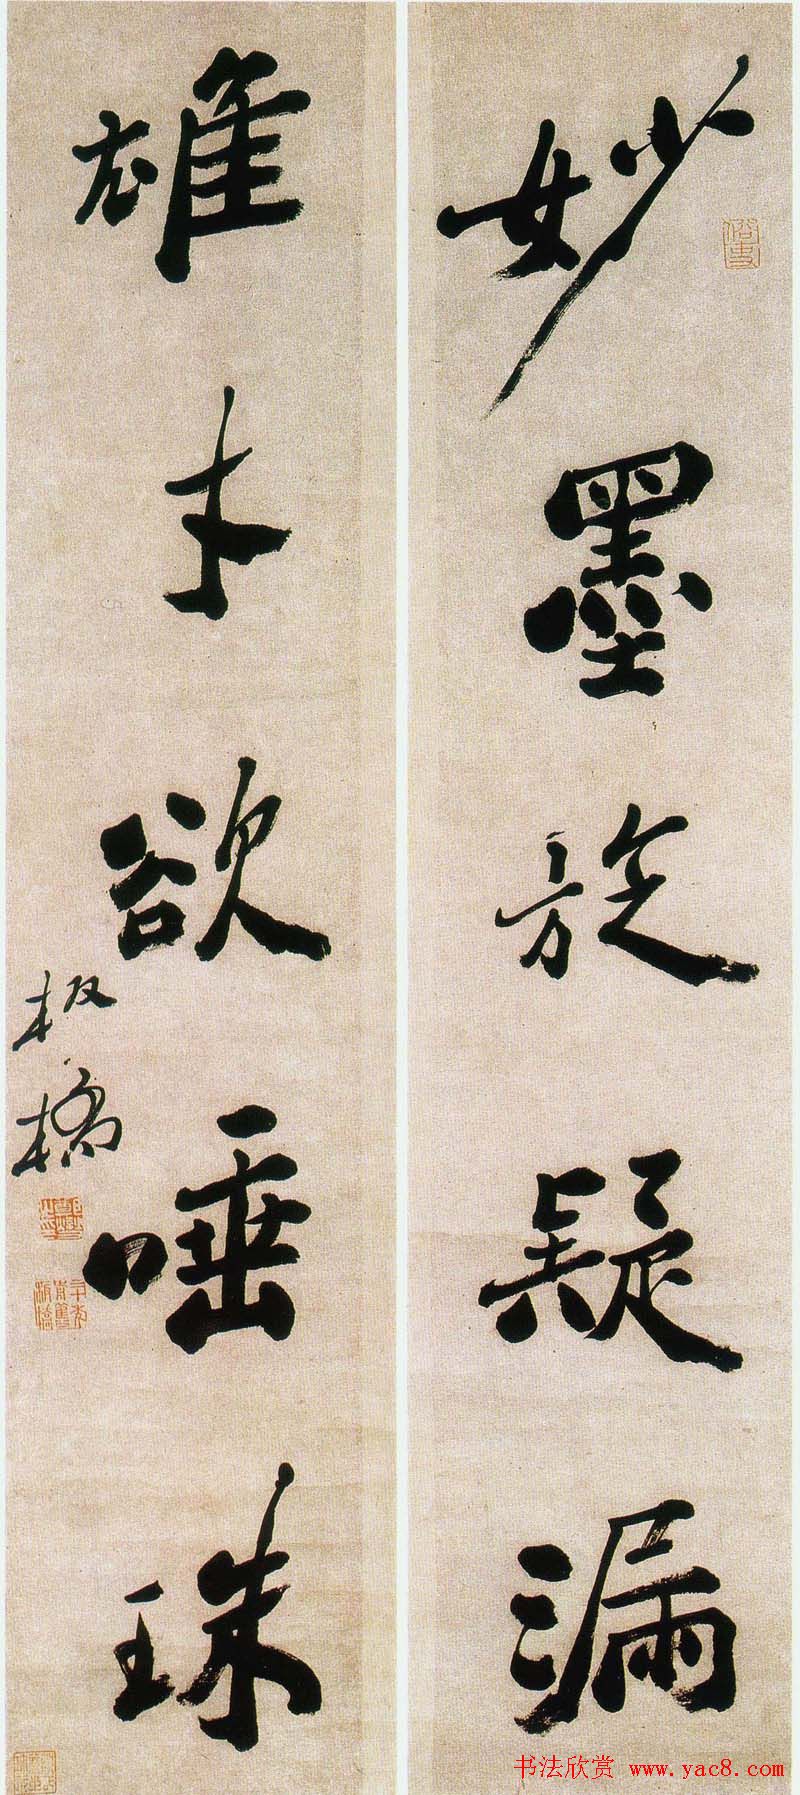 妙墨旋疑漏
俗吏
雄才欲唾珠
板橋
书法欣赏 www.yac8.com